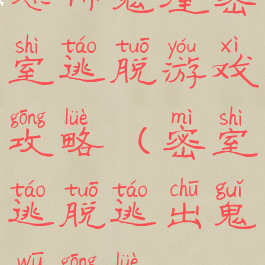 shì táo tuō yóu xì
室逃脱游戏
gōng lüè mì shì
攻略（密室
táo tuō táo chū guǐ
逃脱逃出鬼
wū gōng lüè